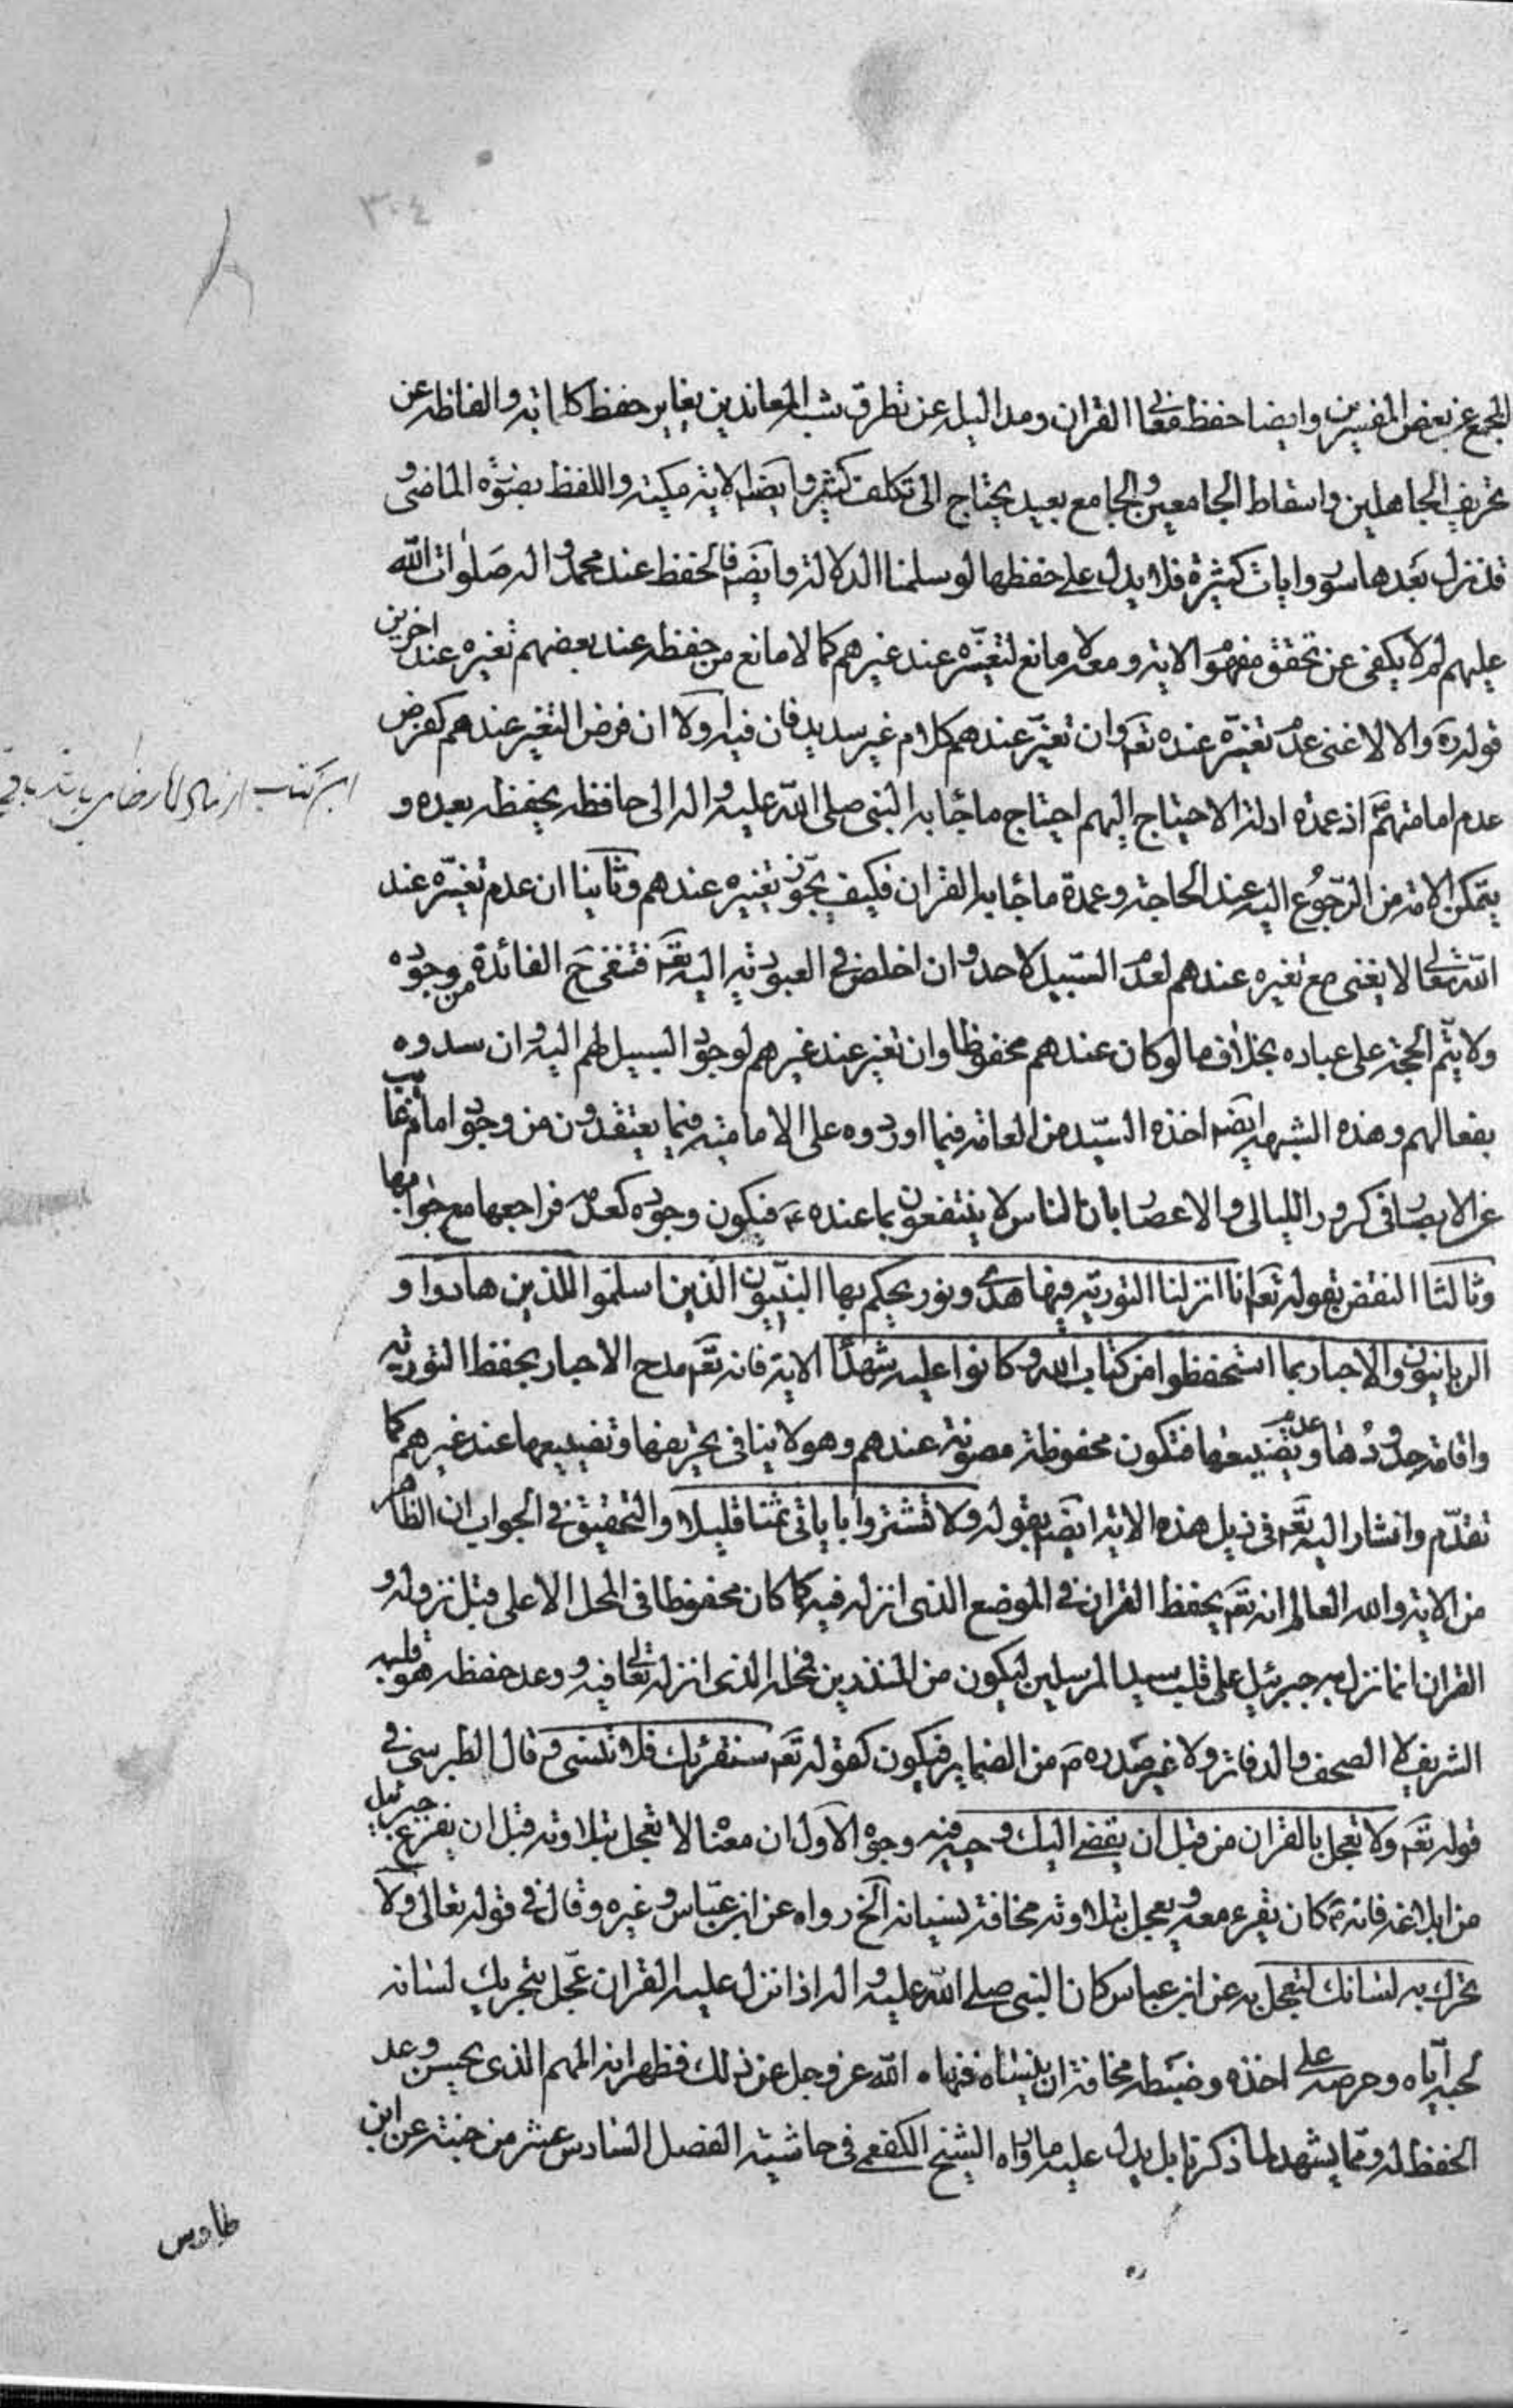 ٣٠٤
المجمع عن بعض المفسرين وايضا حفظ معانى القران ومداليله عن تطرق شبه المعاندين يغاير حفظ كلماته والفاظه عن
تحريف الجاهلين واسقاط الجامعين والجامع بعيد يحتاج الى تكلف كثير وايضا الاية مكية واللفظ بصورة الماضى و
قد نزل بعدها سور وايات كثيرة فلا يدل على حفظها لو سلمنا الدلالة وايضا فالحفظ عند محمد واله صلوات الله
عليهم لم لا يكفى عن تحقق مفهوم الاية ومعه لا مانع لتغيره عند غيرهم كما لا مانع من حفظه عند بعضهم تغيره عند اخرين
قوله ره والا لاغنى عدم تغيره عنده تعم وان تغير عندهم كلام غير سديد فان فيه اولا ان فرض التغير عندهم كفرض
عدم امامتهم اذ عمدة ادلة الاحتياج اليهم احتياج ما جاء به النبى صلى الله عليه واله الى حافظ يحفظه بعده و
يتمكن الامة من الرجوع اليه عند الحاجة وعمدة ما جاء به القران فكيف يجوز تغييره عندهم وثانيا ان عدم تغيره عند
الله تعالى لا يغنى مع تغيره عندهم لعدم السبيل لاحد وان اخلص فى العبودية اليه تعم فتنفى ح الفائدة من وجوده
ولا يتم الحجة على عباده بخلاف ما لو كان عندهم محفوظا وان تغير عند غيرهم لوجود السبيل لهم اليه وان سدوه
بفعالهم وهذه الشبهة ايضا اخذه السيد من العامة فيما اوردوه على الامامية فيما يعتقدون من وجود امام غايب
عن الابصار فى كرور الليالى والاعصار بان الناس لا ينتفعون بما عنده ع فيكون وجوده كعدمه فراجعها مع جوابها
وثالثا النقض بقوله تعم انا انزلنا التورية فيها هدى ونور يحكم بها النبيون الذين اسلموا للذين هادوا و
الربانيون والاحبار بما استحفظوا من كتاب الله وكانوا عليه شهدآء الاية فانه تعم مدح الاحبار بحفظ التورية
واقامة حدودها وعدم تضييعها فتكون محفوظة مصونة عندهم وهو لا ينافى تحريفها وتضييعها عند غيرهم كما
تقدم واشار اليه تعم فى ذيل هذه الاية ايضا بقوله ولا تشتروا باياتى ثمنا قليلا والتحقيق فى الجواب ان الظاهر
من الاية والله العالم انه تعم يحفظ القران فى الموضع الذى انزله فيه كما كان محفوظا فى المحل الاعلى قبل نزوله و
القران انما نزل به جبرئيل على قلب سيد المرسلين ليكون من المنذرين فمحله الذى انزله تعالى فيه ووعد حفظه هو قلبه
الشريف لا الصحف والدفاتر ولا غير صدره ص من الضماير فيكون كقوله تعم سنقرئك فلا تنسى وقال الطبرسى فى
قوله تعم ولا تعجل بالقران من قبل ان يقضى اليك وحيه فيه وجوه الاول ان معناه لا تعجل بتلاوته قبل ان يفرغ جبرئيل
من ابلاغه فانه ص كان يقرء معه ويعجل بتلاوته مخافة نسيانه الخ رواه عن ابن عباس وغيره وقال فى قوله تعالى ولا
تحرك به لسانك لتعجل به عن ابن عباس كان النبى صلى الله عليه واله اذا نزل عليه القران عجل بتحريك لسانه
لحبه اياه وحرصه على اخذه وضبطه مخافة ان ينساه فنهاه الله عز وجل عن ذلك فظهر انه المهم الذى يحسن وعد
الحفظ له ومما يشهد لما ذكرنا بل يدل عليه ما رواه الشيخ الكفعمى فى حاشية الفصل السادس عشر من جنته عن ابن
طاوس
اين كتاب از مال